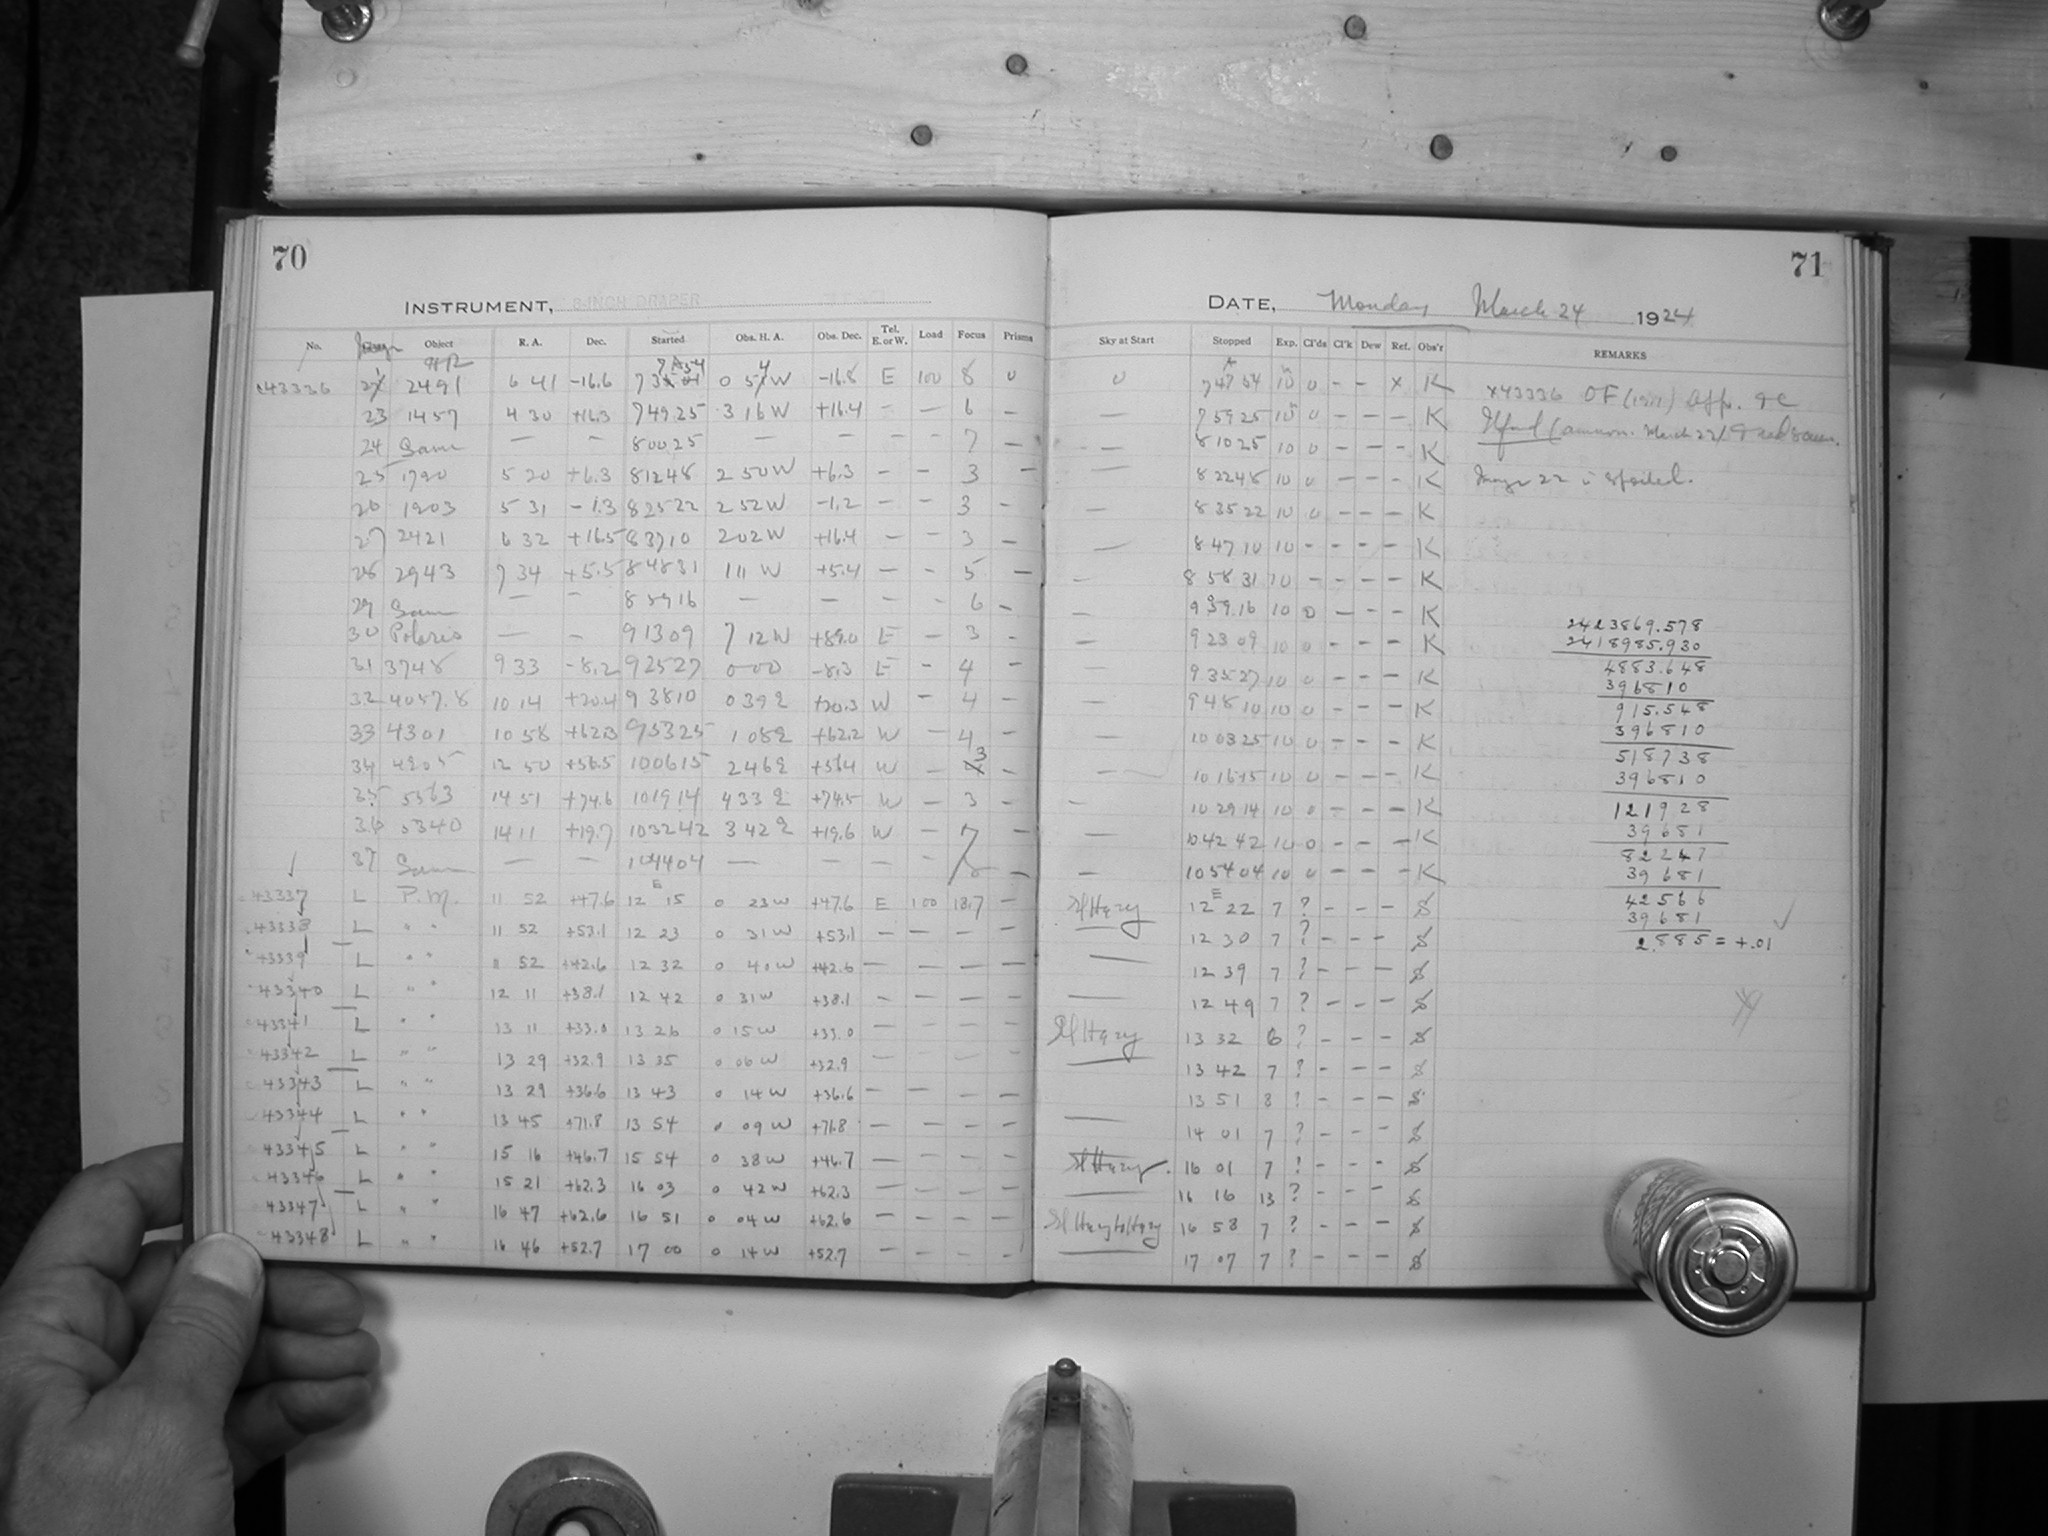 70
INSTRUMENT, 8-INCH DRAPER
No. Object R. A. Dec. Started Obs. H. A. Obs. Dec. Tel. E. or W. Load Focus Prisms
HR
43336 2491 6 41 -16.6 -16.8 E 100 8 0
23 1457 4 30 +16.3 7 49 25 3 16 W +16.4 - - 6
24 Same — - 8 00 25 — - - - 7 -
25 1790 5 20 +6.3 8 12 48 2 50 W +6.3 - - 3 -
26 1903 5 31 -1.3 8 25 22 2 52 W -1.2 - - 3 -
27 2421 6 32 +16.5 8 37 10 2 02 W +16.4 - - 3 -
28 2943 7 34 +5.5 8 48 31 1 11 W +5.4 - - 5 -
29 Same — - 8 59 16 — - - - 6 -
30 Polaris — - 9 13 09 7 12 W +89.0 E - 3 -
31 3748 9 33 -8.2 9 25 27 0 00 -8.3 E - 4 -
32 4057.8 10 14 +20.4 9 38 10 0 39 E +20.3 W - 4 -
33 4301 10 58 +62.3 9 53 25 1 08 E +62.2 W - 4 -
34 4905 12 50 +56.5 10 06 15 2 46 E +56.4 W - 3 -
35 5563 14 51 +74.6 10 19 14 4 33 E +74.5 W - 3 -
36 5340 14 11 +19.7 10 32 42 3 42 E +19.6 W - 7 -
37 Same — - 10 44 04 — - - - -
43337 L P.M. 11 52 +47.6 12 15 0 23 W +47.6 E 100 18.7 -
43338 L " " 11 52 +53.1 12 23 0 31 W +53.1 - - - -
43339 L " " 11 52 +42.6 12 32 0 40 W +42.6 - - - -
43340 L " " 12 11 +38.1 12 42 0 31 W +38.1 - - - -
43341 L " " 13 11 +33.0 13 26 0 15 W +33.0 - - - -
43342 L " " 13 29 +32.9 13 35 0 06 W +32.9 - - - -
43343 L " " 13 29 +36.6 13 43 0 14 W +36.6 - - - -
43344 L " " 13 45 +71.8 13 54 0 09 W +71.8 - - - -
43345 L " " 15 16 +46.7 15 54 0 38 W +46.7 - - - -
43346 L " " 15 21 +62.3 16 03 0 42 W +62.3 - - - -
43347 L " " 16 47 +62.6 16 51 0 04 W +62.6 - - - -
43348 L " " 16 46 +52.7 17 00 0 14 W +52.7 - - - -
71
DATE, Monday March 24 1924
Sky at Start Stopped Exp. Cl'ds Cl'k Dew Ref. Obs'r REMARKS
0 7 47 54 10 0 - - x K
— 7 59 25 10 0 - - - K
— 8 10 25 10 0 - - - K
— 8 22 48 10 0 - - - K
— 8 35 22 10 0 - - - K
— 8 47 10 10 - - - - K
- 8 58 31 10 - - - - K
— 9 59.16 10 0 - - - K
— 9 23 09 10 0 - - - K
— 9 35 27 10 0 - - - K
— 9 48 10 10 0 - - - K
— 10 03 25 10 0 - - - K
— 10 16 15 10 0 - - - K
- 10 29 14 10 0 - - - K
— 10 42 42 10 0 - - - K
- 10 54 04 10 0 - - - K
Sl Hazy 12 22 7 ? - - - S
12 30 7 ? - - - S
— 12 39 7 ? - - - S
— 12 49 7 ? - - - S
Sl Hazy 13 32 6 ? - - - S
13 42 7 ? - - - S
13 51 8 ? - - - S
— 14 01 7 ? - - - S
Sl Hazy. 16 01 7 ? - - - S
— 16 16 13 ? - - - S
Sl Hazy to Hazy 16 58 7 ? - - - S
17 07 7 ? - - - S
x43336 OF (1911) App. 9 C
Ilford (ammon. March 22)
22 is spoiled.
2423869.578
2418985.930
4883.648
396810
915.548
396810
518738
396810
121928
39681
82247
39681
42566
39681
2885 = +.01